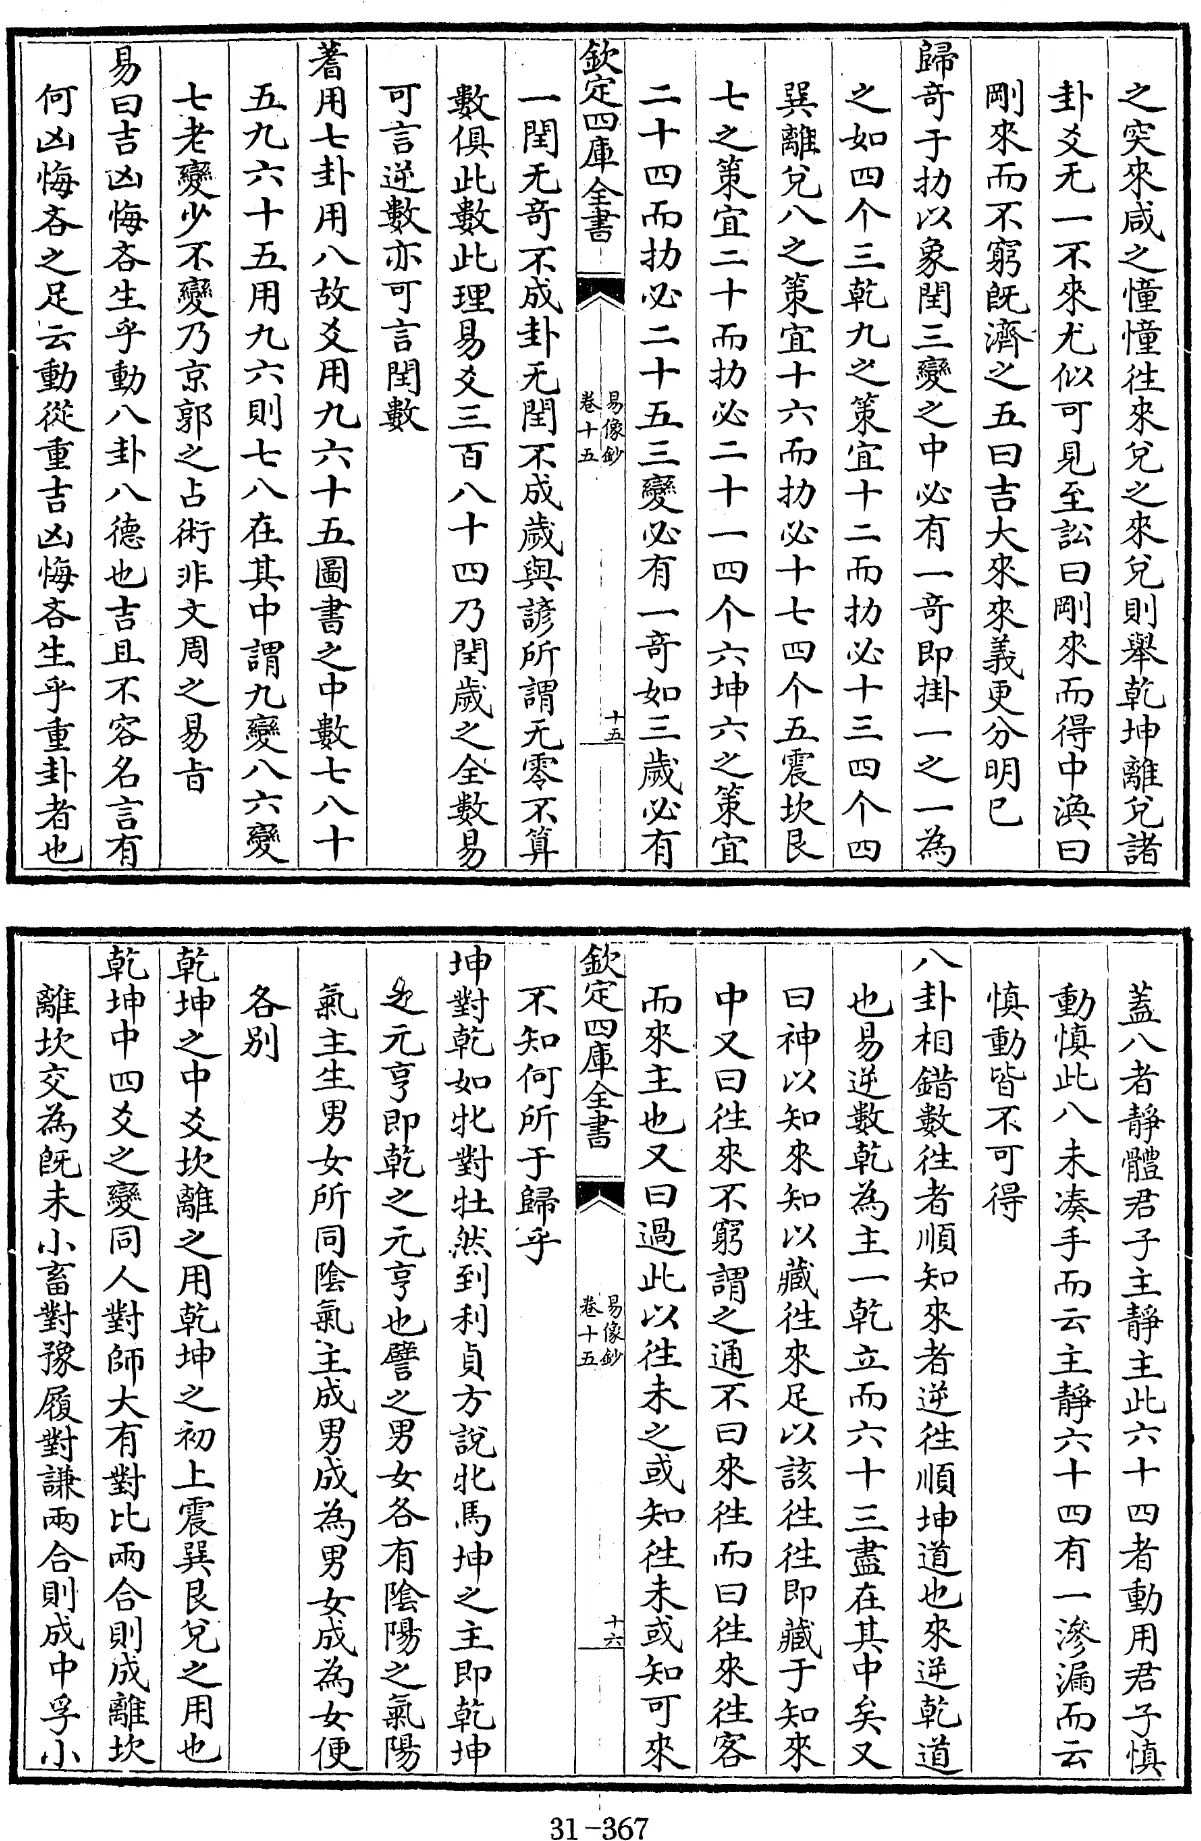 之突來咸之憧憧往來兌之來兌則舉乾坤離兌諸
卦爻无一不來尤似可見至訟曰剛來而得中渙曰
剛來而不窮既濟之五曰吉大來來義更分明已
歸奇于扐以象閏三變之中必有一奇即掛一之一為
之如四个三乾九之策宜十二而扐必十三四个四
巽離兌八之策宜十六而扐必十七四个五震坎艮
七之策宜二十而扐必二十一四个六坤六之策宜
二十四而扐必二十五三變必有一奇如三歲必有
欽定四庫全書
易像鈔
卷十五
十五
一閏无奇不成卦无閏不成歲與諺所謂无零不算
數俱此數此理易爻三百八十四乃閏歲之全數易
可言逆數亦可言閏數
蓍用七卦用八故爻用九六十五圖書之中數七八十
五九六十五用九六則七八在其中謂九變八六變
七老變少不變乃京郭之占術非文周之易旨
易曰吉凶悔吝生乎動八卦八德也吉且不容名言有
何凶悔吝之足云動從重吉凶悔吝生乎重卦者也
蓋八者靜體君子主靜主此六十四者動用君子慎
動慎此八未凑手而云主靜六十四有一滲漏而云
慎動皆不可得
八卦相錯數往者順知來者逆往順坤道也來逆乾道
也易逆數乾為主一乾立而六十三盡在其中矣又
曰神以知來知以藏往來足以該往往即藏于知來
中又曰往來不窮謂之通不曰來往而曰往來往客
而來主也又曰過此以往未之或知往未或知可來
欽定四庫全書
易像鈔
卷十五
十六
不知何所于歸乎
坤對乾如牝對牡然到利貞方說牝馬坤之主即乾坤
之元亨即乾之元亨也譬之男女各有陰陽之氣陽
氣主生男女所同陰氣主成男成為男女成為女便
各別
乾坤之中爻坎離之用乾坤之初上震巽艮兌之用也
乾坤中四爻之變同人對師大有對比兩合則成離坎
離坎交為既未小畜對豫履對謙兩合則成中孚小
31-367